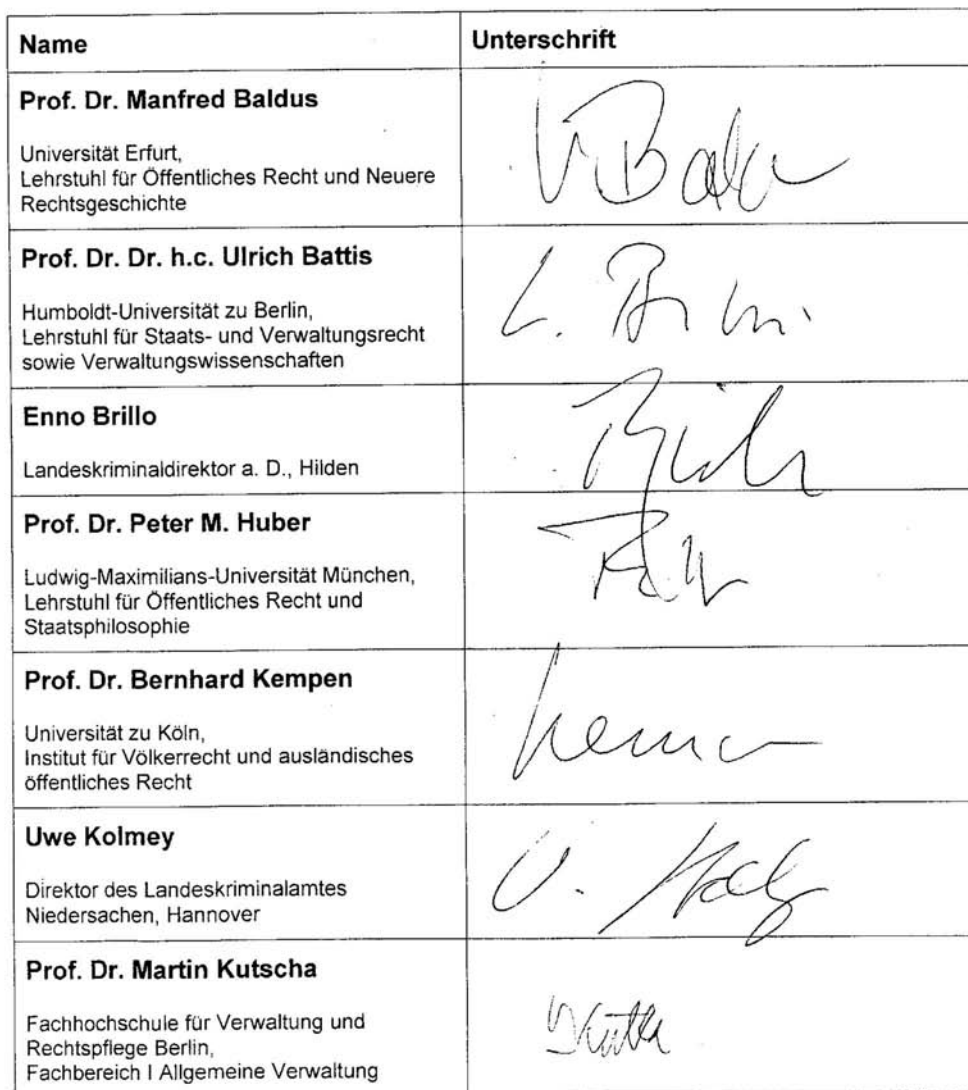 Name Unterschrift
Prof. Dr. Manfred Baldus
Universität Erfurt,
Lehrstuhl für Öffentliches Recht und Neuere
Rechtsgeschichte
Prof. Dr. Dr. h.c. Ulrich Battis
Humboldt-Universität zu Berlin,
Lehrstuhl für Staats- und Verwaltungsrecht
sowie Verwaltungswissenschaften
Enno Brillo
Landeskriminaldirektor a. D., Hilden
Prof. Dr. Peter M. Huber
Ludwig-Maximilians-Universität München,
Lehrstuhl für Öffentliches Recht und
Staatsphilosophie
Prof. Dr. Bernhard Kempen
Universität zu Köln,
Institut für Völkerrecht und ausländisches
öffentliches Recht
Uwe Kolmey
Direktor des Landeskriminalamtes
Niedersachen, Hannover
Prof. Dr. Martin Kutscha
Fachhochschule für Verwaltung und
Rechtspflege Berlin,
Fachbereich I Allgemeine Verwaltung